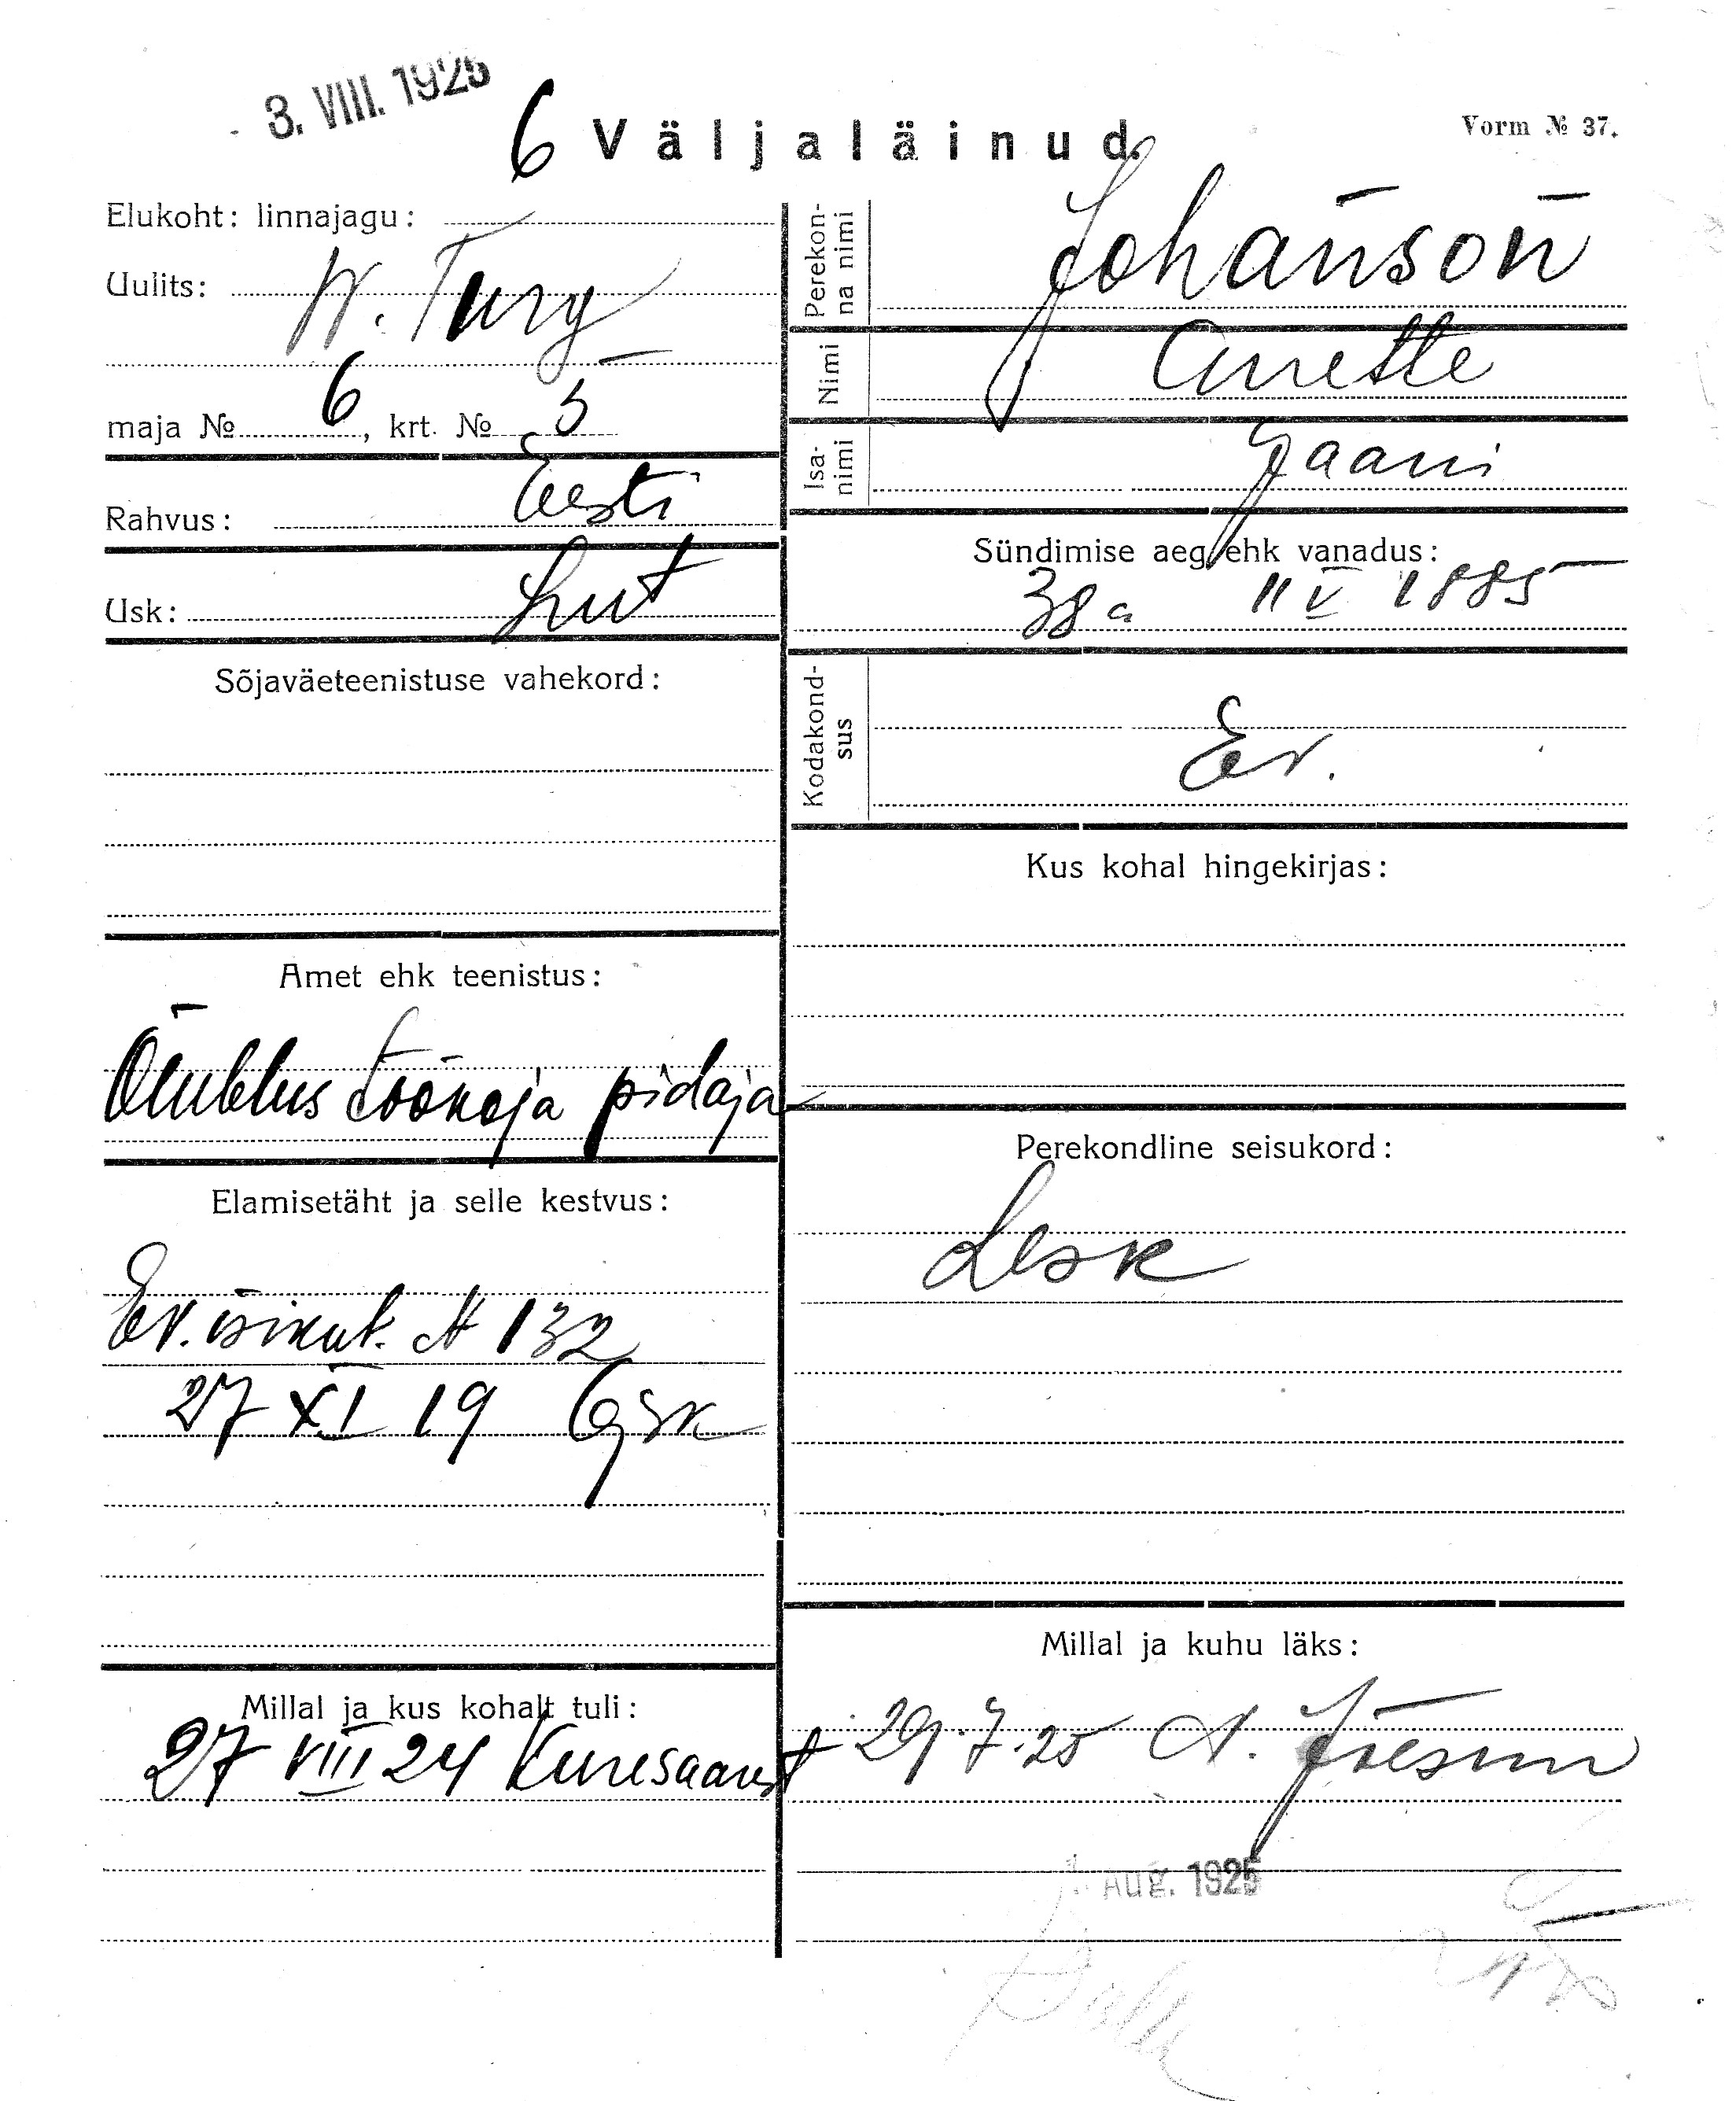 3. VIII. 1925
6 Väljaläinud.
Vorm № 37.
Elukoht: linnajagu:
Uulits: W. Turg
maja № 6, krt. № 5
Rahvus: Eesti
Usk: Lut
Sõjaväeteenistuse vahekord:
Amet ehk teenistus:
Õlleklus söökoja pidaja
Elamisetäht ja selle kestvus:
Ev. isikut. N 132
27 XI 19
Millal ja kus kohalt tuli:
27 VIII 24 Kuresaarest
Perekonna nimi Johanson
Nimi Anette
Isanimi Jaani
Sündimise aeg ehk vanadus:
38 a 11 V 1885
Kodakondsus Ev.
Kus kohal hingekirjas:
Perekondline seisukord:
Lesk
Millal ja kuhu läks:
29.7.25 N. Jõesuu
Aug. 1925